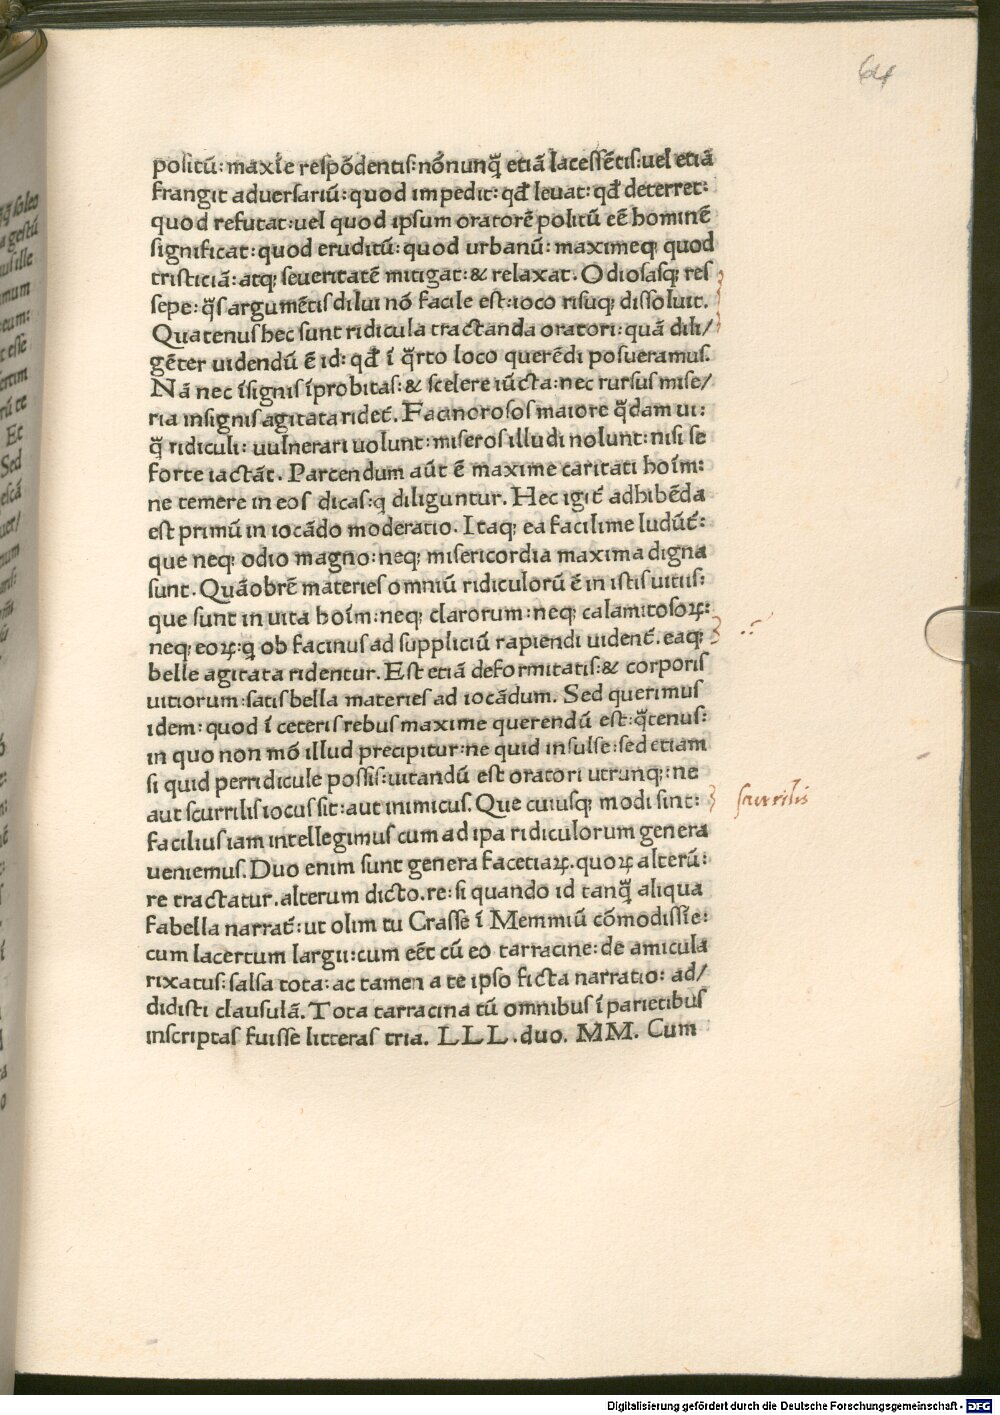 64
politū: maxīe reſpōdentiſ: nōnunq̄ etiā laceſſētiſ: uel etiā
frangit aduerſariū: quod impedit: qd̄ leuat: qd̄ deterret:
quod refutat: uel quod ipſum oratorē politū eē hominē
ſignificat: quod eruditū: quod urbanū: maximeq; quod
triſticiā: atq; ſeueritatē mitigat: & relaxat. Odioſaſq; reſ
ſepe: q̄ſ argumētiſ dilui nō facile eſt: ioco riſuq; diſſoluit.
Quatenuſ hec ſunt ridicula tractanda oratori: quā dili/
gēter uidendū ē id: qd̄ ī q̄rto loco querēdi poſueramuſ.
Nā nec īſigniſ īprobitaſ: & ſcelere iūcta: nec rurſuſ miſe/
ria inſigniſ agitata ridet̄. Facinoroſoſ maiore q̄dam ui:
q̄ ridiculi: uulnerari uolunt: miſeroſ illudi nolunt: niſi ſe
forte iactāt. Parcendum aūt ē maxime caritati hoīm:
ne temere in eoſ dicaſ: q diliguntur. Hec igit̄ adhibēda
eſt primū in iocādo moderatio. Itaq; ea facilime ludūt̄:
que neq; odio magno: neq; miſericordia maxima digna
ſunt. Quāobrē materieſ omniū ridiculorū ē in iſtiſ uitiiſ:
que ſunt in uita hoīm: neq; clarorum: neq; calamitoſoꝝ:
neq; eoꝝ: q ob facinuſ ad ſuppliciū rapiendi uident̄. eaq;
belle agitata ridentur. Eſt etiā deformitatiſ: & corporiſ
uitiorum: ſatiſ bella materieſ ad iocādum. Sed querimuſ
idem: quod ī ceteriſ rebuſ maxime querendū eſt: q̄tenuſ:
in quo non mō illud precipitur: ne quid inſulſe: ſed etiam
ſi quid perridicule poſſiſ: uitandū eſt oratori utrunq;: ne
aut ſcurriliſ iocuſ ſit: aut inimicuſ. Que cuiuſq; modi ſint:
ſcurrilis
faciliuſ iam intellegimuſ cum ad ipa ridiculorum genera
ueniemuſ. Duo enim ſunt genera facetiaꝝ. quoꝝ alterū:
re tractatur. alterum dicto. re: ſi quando id tanq̄ aliqua
fabella narrat̄: ut olim tu Craſſe ī Memmiū cōmodiſſīe:
cum lacertum largii: cum eēt cū eo tarracine: de amicula
rixatuſ: ſalſa tota: ac tamen a te ipſo ficta narratio: ad/
didiſti clauſulā. Tota tarracina tū omnibuſ ī parietibuſ
inſcriptaſ fuiſſe litteraſ tria. LLL. duo. MM. Cum
Digitalisierung gefördert durch die Deutsche Forschungsgemeinschaft - DFG